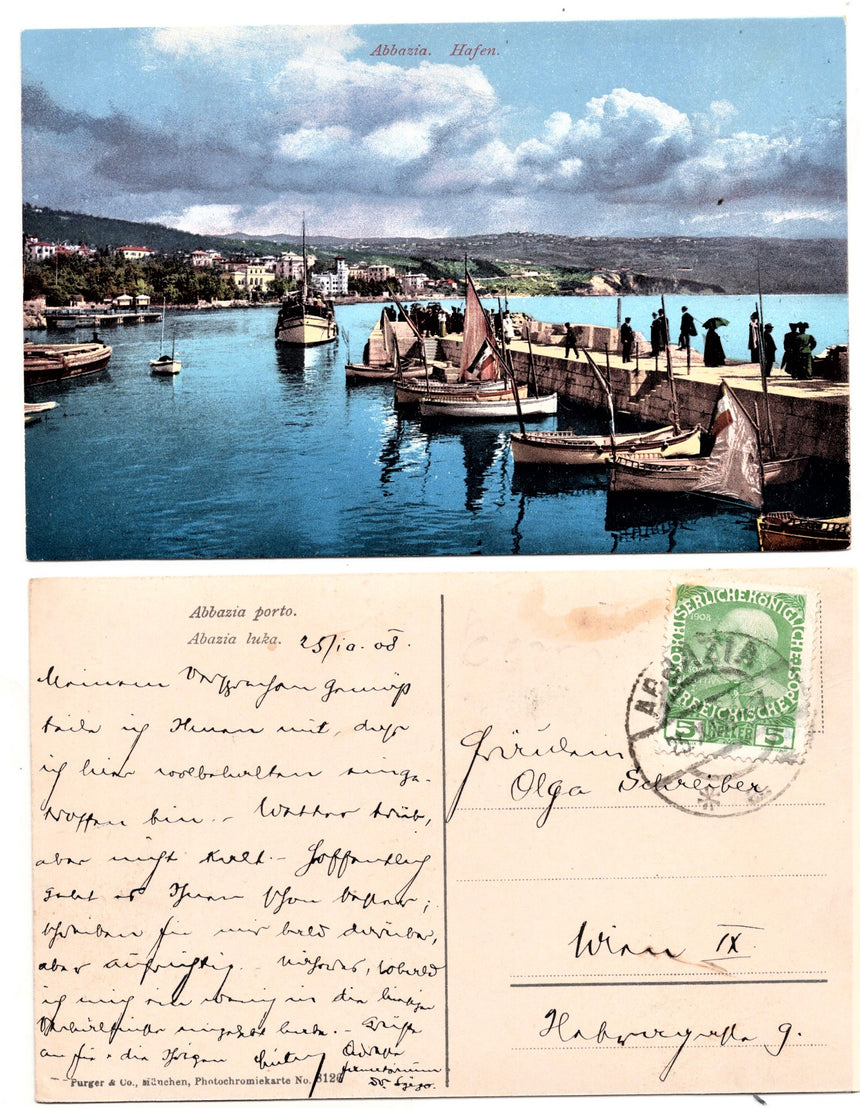 Abbazia. Hafen.
Abbazia porto.
Abazia luka.
25/10.08.
Meinem Versprechen gemäß
teile ich Ihnen mit, dass
ich hier wolbehalten einge-
troffen bin. – Wetter trüb,
aber nicht kalt. – Hoffentlich
geht es Ihnen schon besser;
schreiben Sie mir bald darüber,
aber aufrichtig. sobald
ich mich ein wenig in die hiesigen
Verhältnisse eingelebt habe. – Grüße
an Sie & die Ihrigen Adresse
Sanatorium
Dr. Szegö.
Purger & Co., München, Photochromiekarte No. 8126
KAISERLICHE KÖNIGLICHE ÖSTERREICHISCHE POST
1908
5 HELLER 5
ABBAZIA
Fräulein
Olga Schreiber
Wien IX.
9.